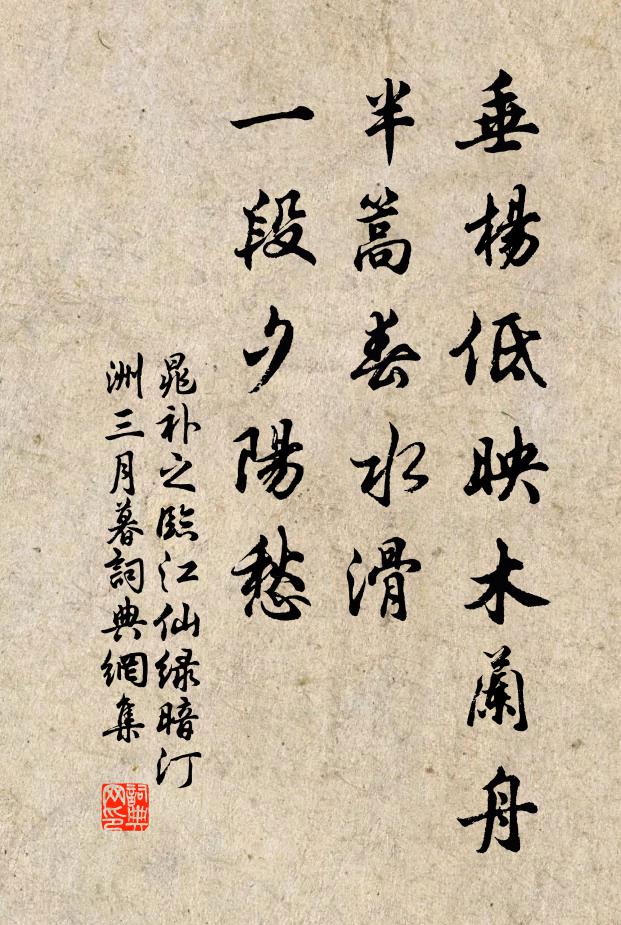 垂楊低映木蘭舟
半篙春水滑
一段夕陽愁
晁补之臨江仙緑暗汀
洲三月暮詞典網集
詞典
网印